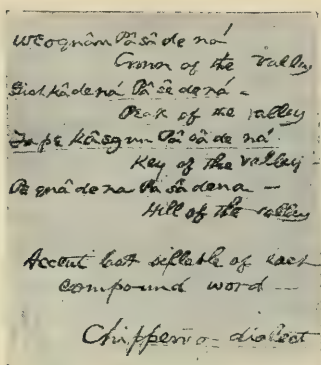 Weoquân Pâ sâ de ná
Crown of the Valley
Gish kâ de ná Pâ sê de ná -
Peak of the valley
Tape Kâegun Pâ sâ de ná
Key of the Valley -
Pe quâ de na Pa sâ dena -
Hill of the valley
Accent last sillable of each
compound word -
Chippewa - dialect